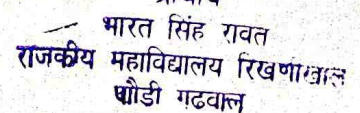 भारत सिंह रावत
राजकीय महाविद्यालय रिखणीखाल
पौडी गढवाल